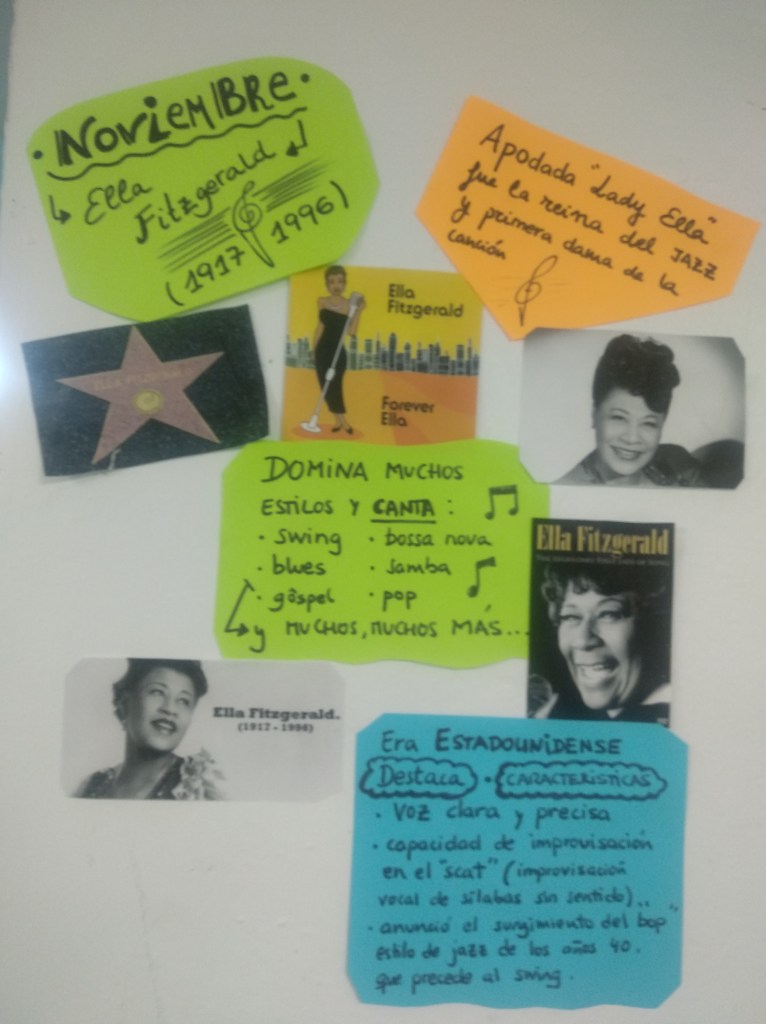 • NovieMBRe •
Ella
Fitzgerald
(1917 1996)
Apodada "Lady Ella"
fue la reina del JAZZ
y primera dama de la
canción
ELLA FITZGERALD
Ella
Fitzgerald
Forever
Ella
DOMINA MUCHOS
ESTILOS Y CANTA :
• swing • bossa nova
• blues • samba
• góspel • pop
y MUCHOS, MUCHOS MÁS...
Ella Fitzgerald
Ella Fitzgerald.
(1917 - 1996)
Era ESTADOUNIDENSE
Destaca • CARACTERÍSTICAS
• voz clara y precisa
• capacidad de improvisación
en el "scat" (improvisación
vocal de sílabas sin sentido)..
• anunció el surgimiento del bop"
estilo de jazz de los años 40.
que precede al swing.